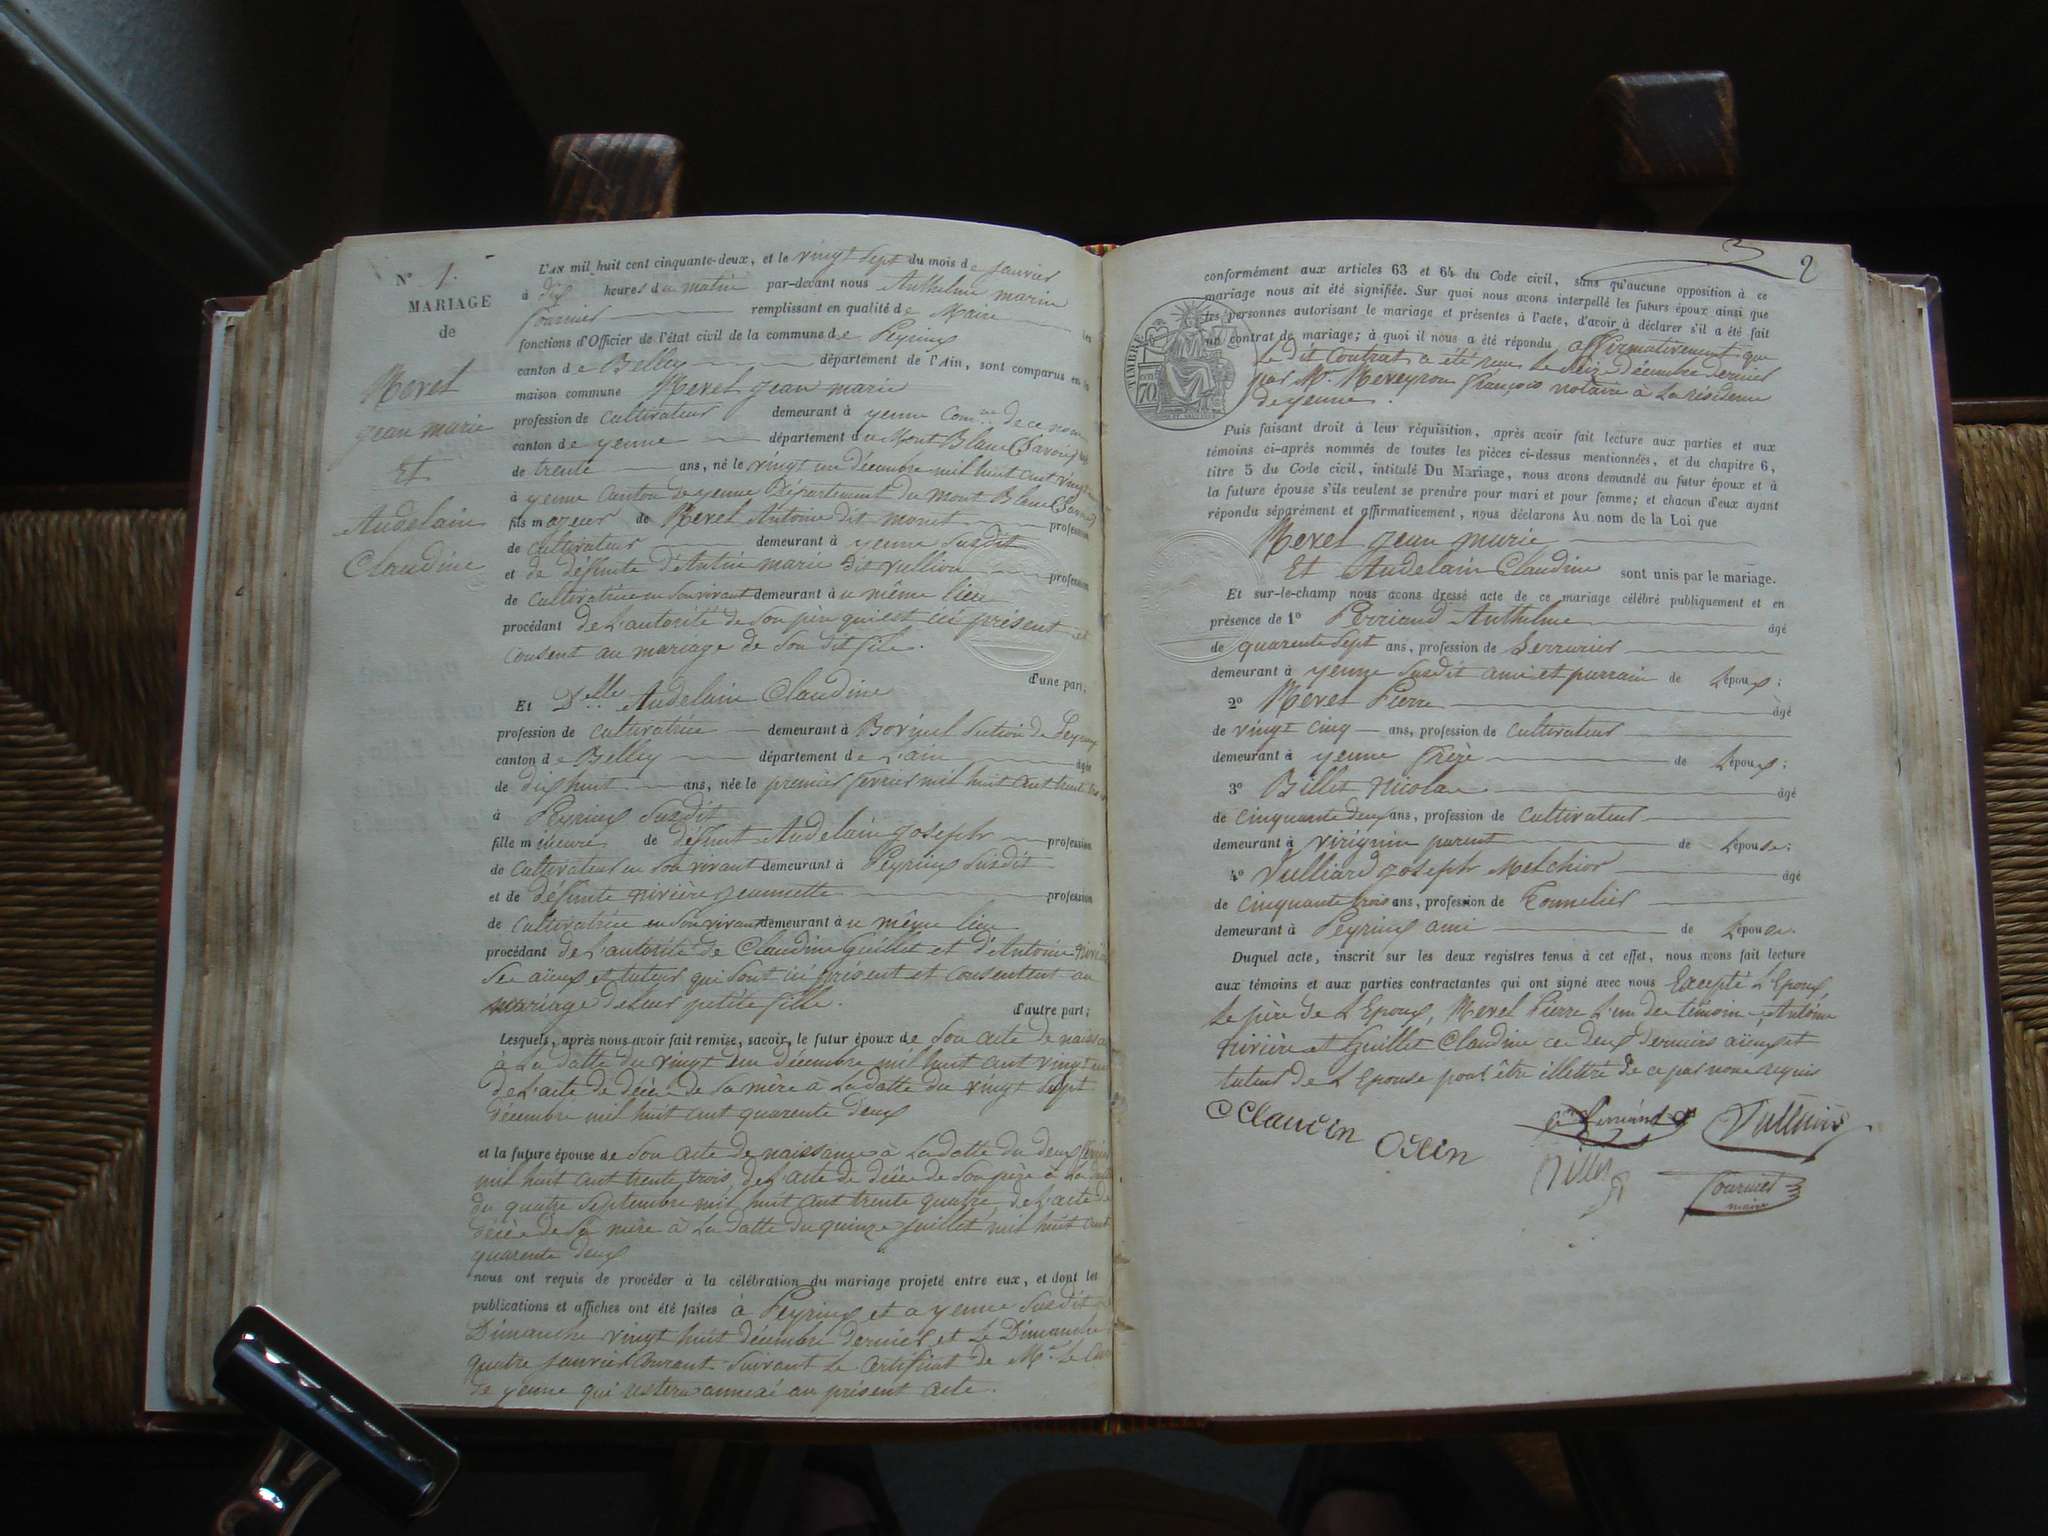 N° 1.
MARIAGE
de
Mevel
jean marie
Et
Andelain
Claudine
L'AN mil huit cent cinquante-deux, et le vingt sept du mois de janvier
à dix heures du matin par-devant nous Anthelme marin
fournier remplissant en qualité de Maire les
fonctions d'Officier de l'état civil de la commune de Peyrieux
canton de Belley département de l'Ain, sont comparus en la
maison commune Mevel jean marie
profession de cultivateur demeurant à yenne com.ne de ce nom
canton de yenne département du Mont Blanc (Savoie)
de trente ans, né le vingt un décembre mil huit cent vingt
à yenne canton de yenne Département du mont Blanc (Savoie)
fils majeur de Mevel Antoine dit monet profession
de cultivateur demeurant à yenne susdit
et de défunte marie dit vullion profession
de cultivatrice en son vivant demeurant à u même lieu
procédant de L'autorité de son père qui est ici présent et
consent au mariage de son dit fils.
d'une part;
Et D.lle Andelain Claudine
profession de cultivatrice demeurant à Bovinel section de Peyrieux
canton de Belley département de L'ain âgée
de dix huit ans, née le premier fevrier mil huit cent trente trois
à Peyrieux susdit
fille mineure de défunt Andelain joseph profession
de cultivateur en son vivant demeurant à Peyrieux susdit
et de défunte rivière jeannette profession
de cultivatrice en son vivant demeurant à u même lieu
procédant de L'autorité de Claudine Guillet et d'Antoine rivière
Ses aïeux et tuteur qui sont ici présent et consentent au
mariage de leur petite fille.
d'autre part;
Lesquels, après nous avoir fait remise, savoir, le futur époux de son acte de naissance
à La datte du vingt un décembre mil huit cent vingt un
de L'acte de décès de sa mère à La datte du vingt sept
décembre mil huit cent quarente deux
et la future épouse de son acte de naissance à La datte du deux fevrier
mil huit cent trente trois, de L'acte de décès de son père à La datte
du quatre septembre mil huit cent trente quatre, de L'acte de
décès de Sa mère à La datte du quinze juillet mil huit cent
quarente deux
nous ont requis de procéder à la célébration du mariage projeté entre eux, et dont les
publications et affiches ont été faites à Peyrieux et a yenne susdit
Dimanche vingt huit décembre dernier et Le Dimanche
quatre janvier courant suivant Le certificat de Mr Le Curé
de yenne qui restera annexé au présent acte.
2
conformément aux articles 63 et 64 du Code civil, sans qu'aucune opposition à ce
mariage nous ait été signifiée. Sur quoi nous avons interpellé les futurs époux ainsi que
les personnes autorisant le mariage et présentes à l'acte, d'avoir à déclarer s'il a été fait
un contrat de mariage; à quoi il nous a été répondu affirmativement que
Le dit Contrat a été reçu Le seize décembre dernier
par Mr. Neveyron françois notaire à La résidence
de yenne.
TIMBRE
Puis faisant droit à leur réquisition, après avoir fait lecture aux parties et aux
témoins ci-après nommés de toutes les pièces ci-dessus mentionnées, et du chapitre 6,
titre 5 du Code civil, intitulé Du Mariage, nous avons demandé au futur époux et à
la future épouse s'ils veulent se prendre pour mari et pour femme; et chacun d'eux ayant
répondu séparément et affirmativement, nous déclarons Au nom de la Loi que
Mevel jean marie
Et Andelain Claudine sont unis par le mariage.
Et sur-le-champ nous avons dressé acte de ce mariage célébré publiquement et en
présence de 1° Perriand Anthelme âgé
de quarente sept ans, profession de Serrurier
demeurant à yenne susdit ami et parrain de L'époux;
2° Mevel Pierre âgé
de vingt cinq ans, profession de cultivateur
demeurant à yenne frère de L'époux;
3° Billet Nicolas âgé
de cinquante deux ans, profession de cultivateur
demeurant à virignin parent de L'épouse;
4° Vulliard joseph Melchior âgé
de cinquante trois ans, profession de Tonnelier
demeurant à Peyrieux ami de L'épouse.
Duquel acte, inscrit sur les deux registres tenus à cet effet, nous avons fait lecture
aux témoins et aux parties contractantes qui ont signé avec nous Excepté L'Epoux,
Le père de L'Epoux, Mevel Pierre L'un des témoins, Antoine
rivière et Guillet Claudine ces deux derniers aïeux et
tuteur de L'Epouse pour être illettré de ce par nous requis
Claudin
Billet
fournier
maire